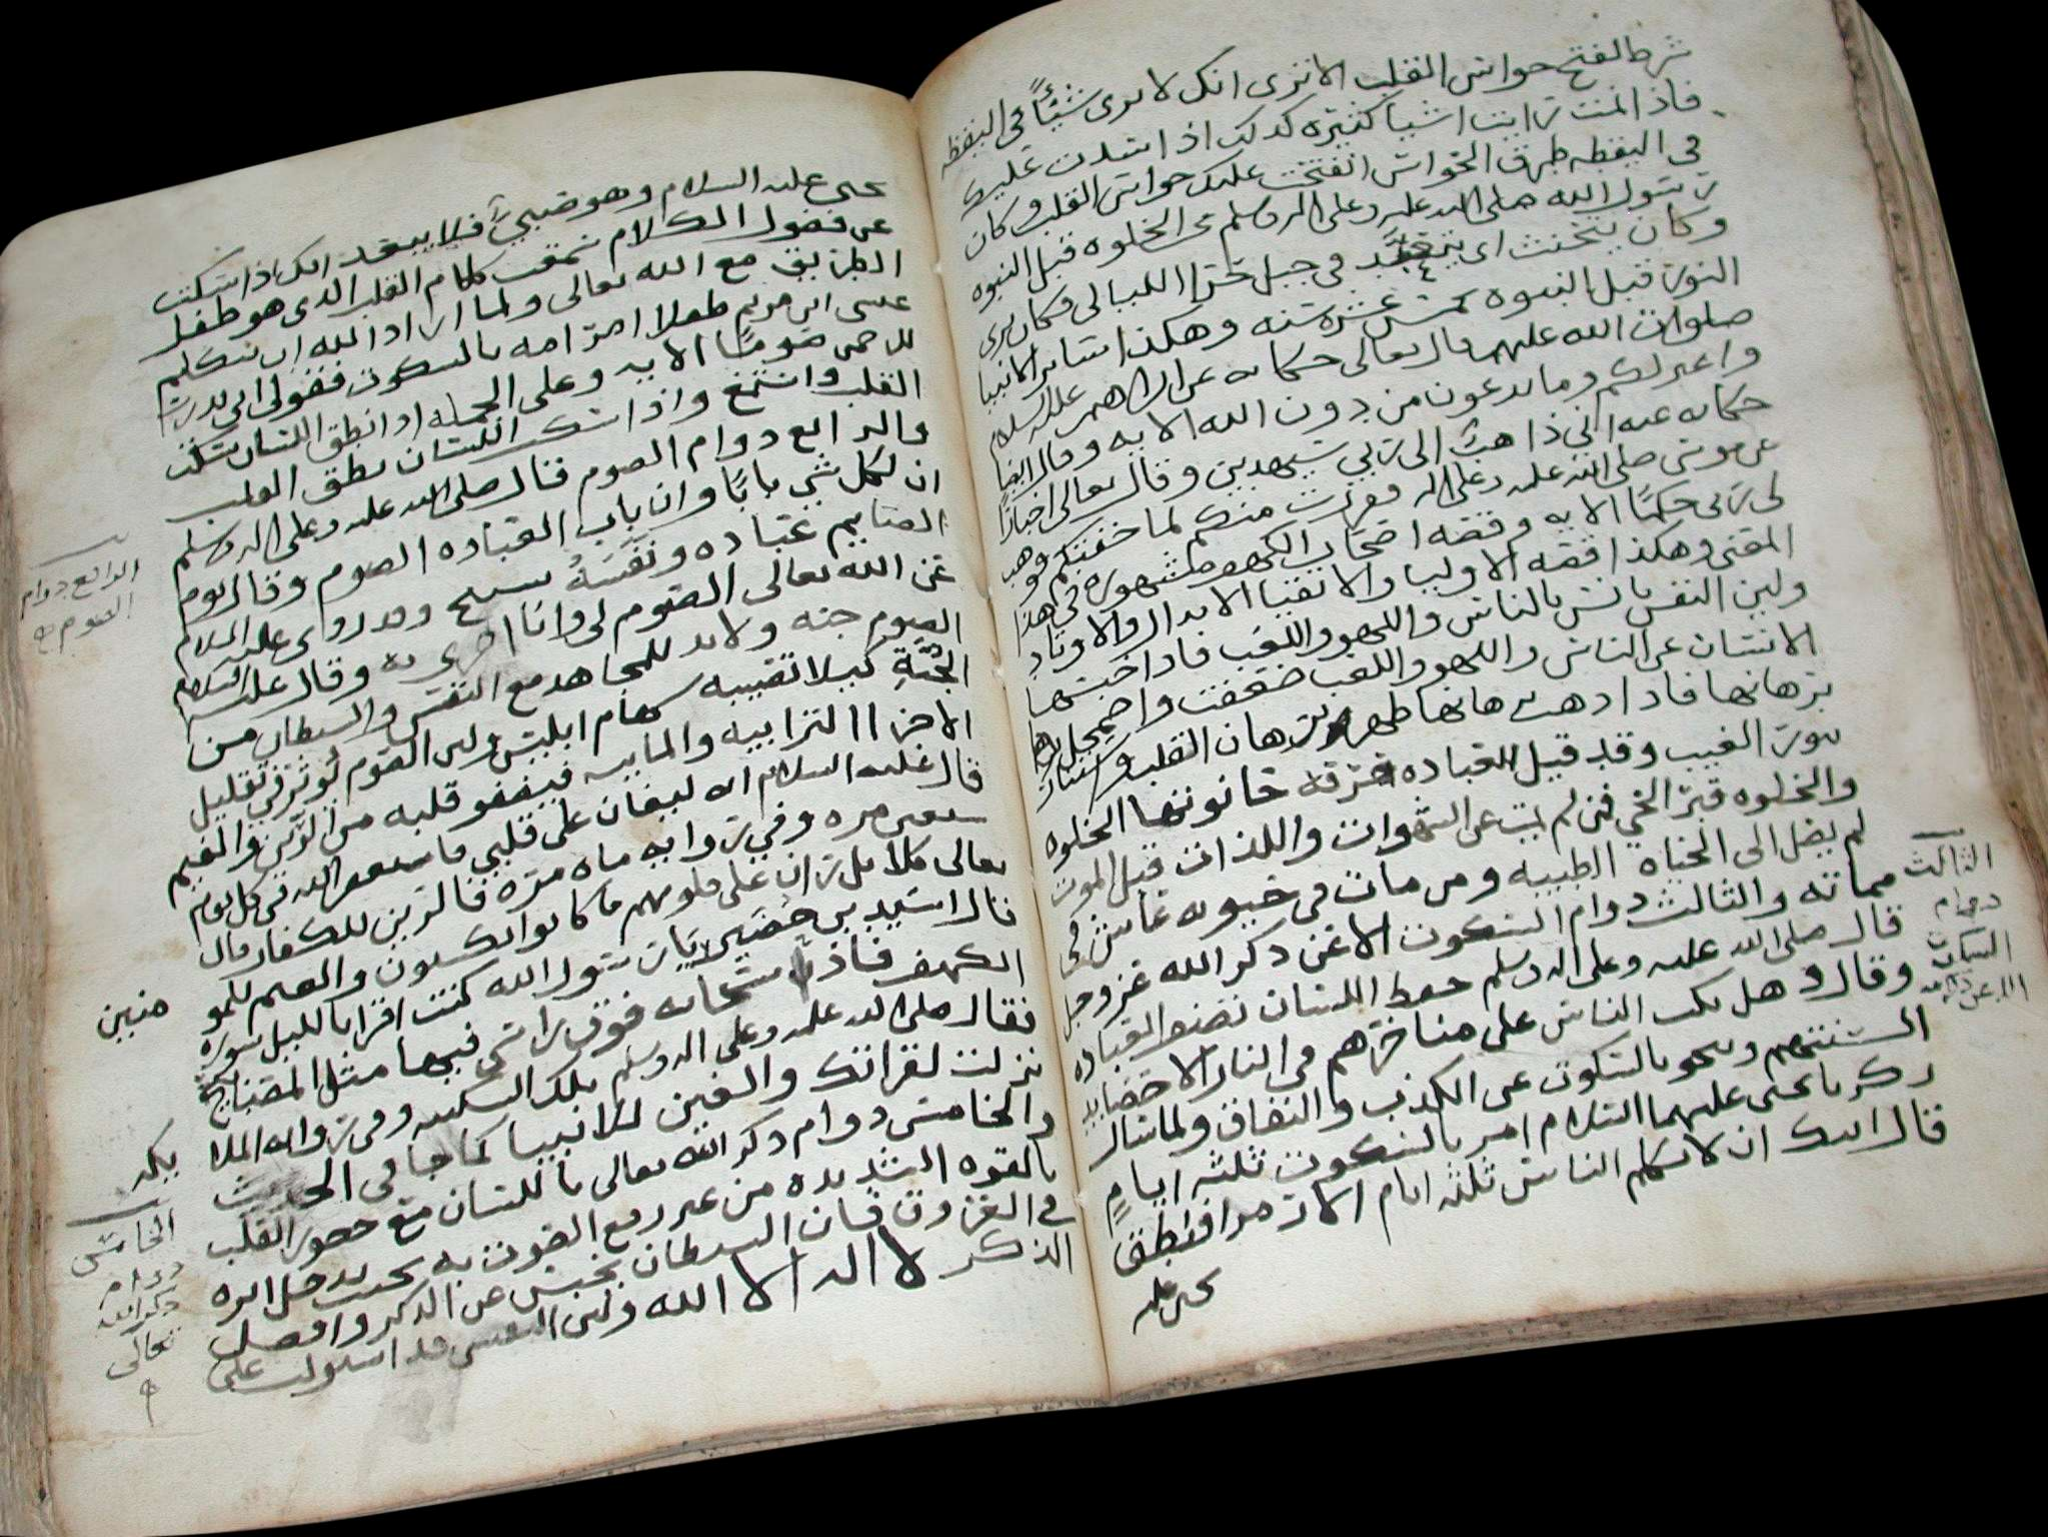 شرط لفتح حواس القلب الا ترى انك لا ترى شيئًا في اليقظه
فاذا نمت رايت اشيا كثيره كذلك اذا انسدت عليك
في اليقظه طرق الحواس انفتحت عليك حواس القلب وكان
رسول الله صلى الله عليه وعلى اله وسلم يحب الخلوه قبل النبوه
وكان يتحنث اي يتعبد في جبل حرا الليالي فكان يرى
النور قبل النبوه خمس عشره سنه وهكذا سائر الانبيا
صلوات الله عليهم قال تعالى حكايه عن ابراهيم عليه السلام
واعتزلكم وما تدعون من دون الله الايه وقال ايضا
حكايه عنه اني ذاهب الى ربي سيهدين وقال تعالى اخبارا
عن موسى صلى الله عليه وعلى اله ففررت منكم لما خفتكم فوهب
لي ربي حكمًا الايه وقصه اصحاب الكهف مشهوره في هذا
المعنى وهكذا قصه الاوليا والاتقيا الابدال والاوتاد
ولين النفس تانس بالناس واللهو واللعب فاذا حبستها
الانسان عن الناس واللهو واللعب ضعفت واضمحل
برهانها فاذا ذهب برهانها ظهر برهان القلب واستنار
بنور الغيب وقد قيل العباده حرفه حانوتها الخلوه
والخلوه قبر الحي فمن لم يمت عن الشهوات واللذات قبل الموت
لم يصل الى الحياه الطيبه ومن مات في حيوته عاش في
مماته والثالث دوام السكوت الا عن ذكر الله عز وجل
قال صلى الله عليه وعلى اله وسلم حفظ اللسان نصف العباده
وقال وهل يكب الناس على مناخرهم في النار الا حصايد
السنتهم وينجو بالسكوت عن الكذب والنفاق ولما سال
زكريا يحيى عليهما السلام امر بالسكوت ثلثه ايام
قال ايتك ان لا تكلم الناس ثلثه ايام الا رمزا فنطق
يحيى عليه
الثالث
دوام
السكوت
الا عن ذكر الله
يحيى عليه السلام وهو صبي فلا يبعد انك اذا سكت
عن فضول الكلام نطق كلام القلب الذي هو طفل
الطريق مع الله تعالى ولما اراد الله ان يتكلم
عيسى ابن مريم طفلا امر امه بالسكوت فقولي اني نذرت
للرحمن صومًا الايه وعلى الجمله اذ انطق اللسان سكت
القلب واستمع واذا سكت اللسان نطق القلب
والرابع دوام الصوم قال صلى الله عليه وعلى اله وسلم
ان لكل شي بابًا وان باب العباده الصوم وقال نوم
الصايم عباده ونفسه تسبيح وقد روى عليه السلام
عن الله تعالى الصوم لي وانا اجزي به وقال عليه السلام
الصوم جنه ولا بد للمجاهد مع النفس والشيطان من
الجُنَّةِ كيلا تصيبه سهام ابليس ولين الصوم يوثر في تقليل
الاجزا الترابيه والمائيه فيصفو قلبه من الرين والغيم
قال عليه السلام انه ليغان على قلبي فاستغفر الله في كل يوم
سبعين مره وفي روايه مايه مره فالرين للكفار قال
تعالى كلا بل ران على قلوبهم ما كانوا يكسبون والغيم للمو
قال اسيد بن حضير يا رسول الله كنت اقرا بالليل سوره
الكهف فاذا سحابه فوق راسي فيها مثل المصباح
فقال صلى الله عليه وعلى اله وسلم تلك السكينه وفي روايه الملا
نزلت لقرانك والغين للانبيا كما جا في الحديث
والخامس دوام ذكر الله تعالى باللسان مع حضور القلب
بالقوه الشديده من غير رفع الصوت به بحيث يدخل اثره
في العروق فان الشيطان يخنس عن الذكر وافضل
الذكر لا اله الا الله ولين النفس قد استولت على
الرابع دوام
الصوم
منين
يكه
الخامس
دوام
ذكر الله
تعالى